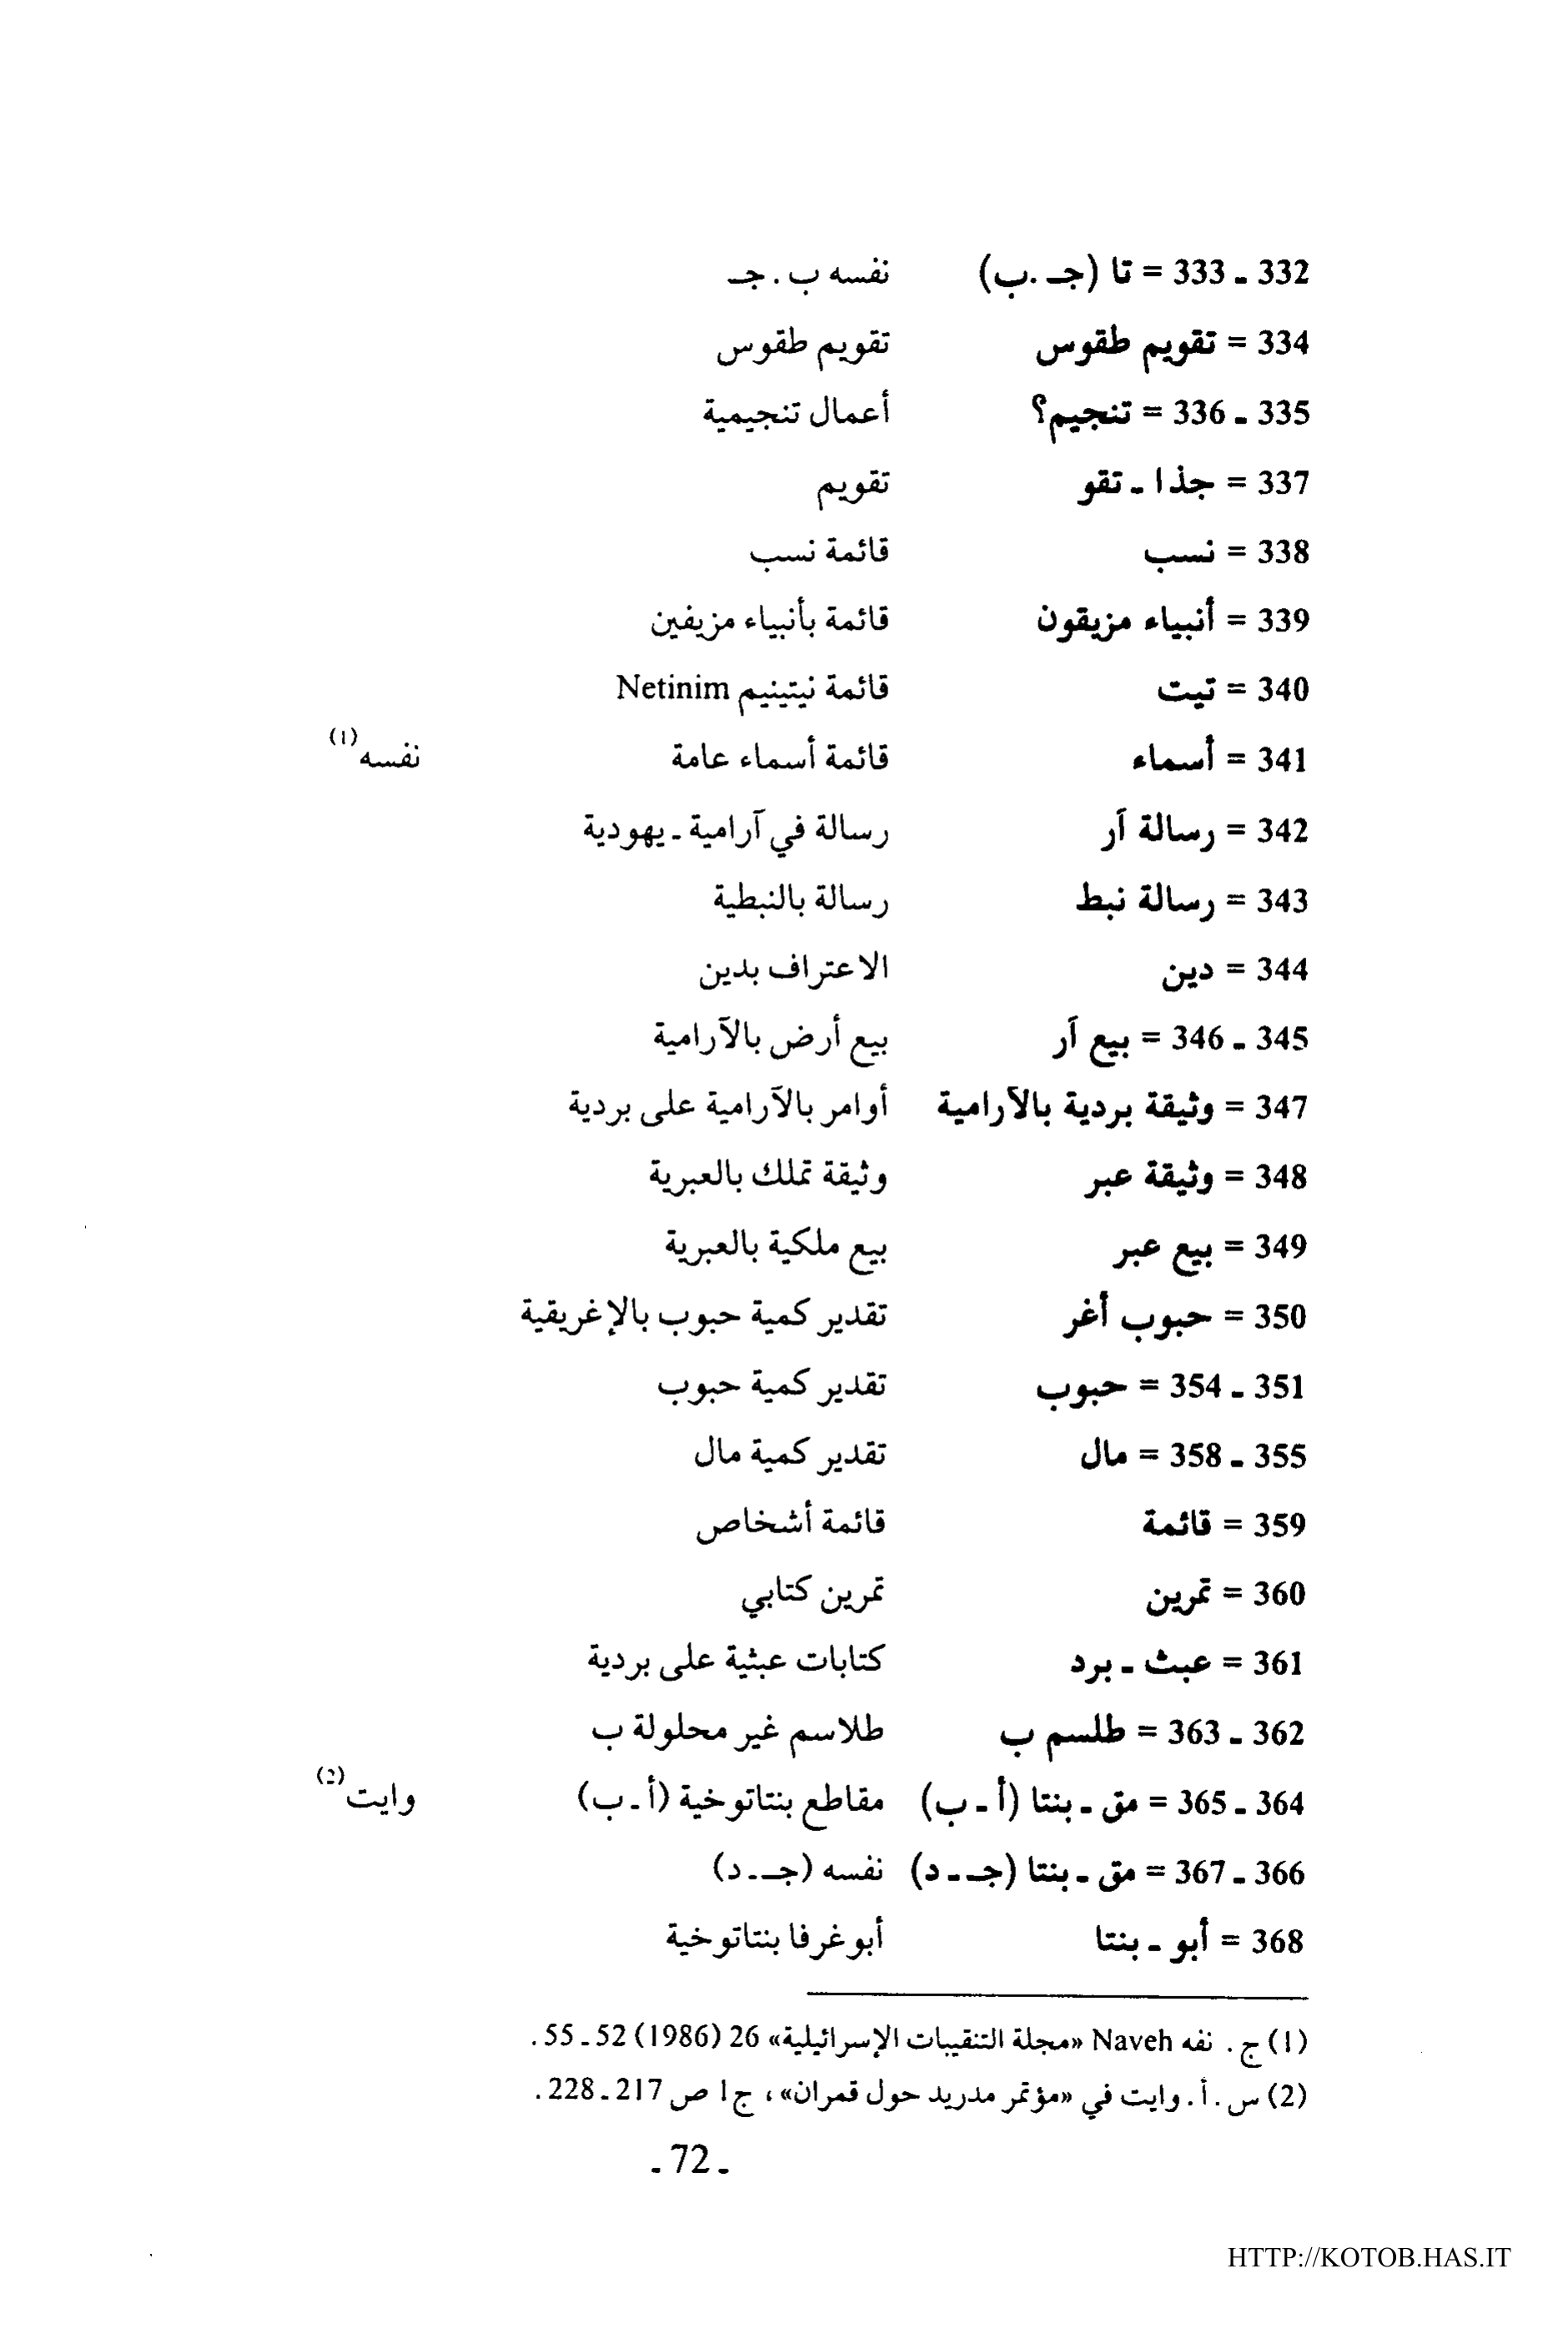 332 ـ 333 = تا (جـ .ب) نفسه ب . جـ
334 = تقويم طقوس تقويم طقوس
335 ـ 336 = تنجيم؟ أعمال تنجيمية
337 = جذا ـ تقو تقويم
338 = نسب قائمة نسب
339 = أنبياء مزيقون قائمة بأنبياء مزيفين
340 = تيت قائمة نيتينيم Netinim
341 = أسماء قائمة أسماء عامة نفسه(1)
342 = رسالة آر رسالة في آرامية ـ يهودية
343 = رسالة نبط رسالة بالنبطية
344 = دين الاعتراف بدين
345 ـ 346 = بيع آر بيع أرض بالآرامية
347 = وثيقة بردية بالآرامية أوامر بالآرامية على بردية
348 = وثيقة عبر وثيقة تملك بالعبرية
349 = بيع عبر بيع ملكية بالعبرية
350 = حبوب أغر تقدير كمية حبوب بالإغريقية
351 ـ 354 = حبوب تقدير كمية حبوب
355 ـ 358 = مال تقدير كمية مال
359 = قائمة قائمة أشخاص
360 = تمرين تمرين كتابي
361 = عبث ـ برد كتابات عبثية على بردية
362 ـ 363 = طلسم ب طلاسم غير محلولة ب
364 ـ 365 = مق ـ بنتا (أ ـ ب) مقاطع بنتاتوخية (أ ـ ب) وايت(2)
366 ـ 367 = مق ـ بنتا (جـ ـ د) نفسه (جـ ـ د)
368 = أبو ـ بنتا أبوغرفا بنتاتوخية
(1) ج . نفه Naveh «مجلة التنقيبات الإسرائيلية» 26 (1986) 52 ـ 55 .
(2) س . أ . وايت في «مؤتمر مدريد حول قمران» ، ج1 ص 217 ـ 228 .
ـ 72 ـ
HTTP://KOTOB.HAS.IT